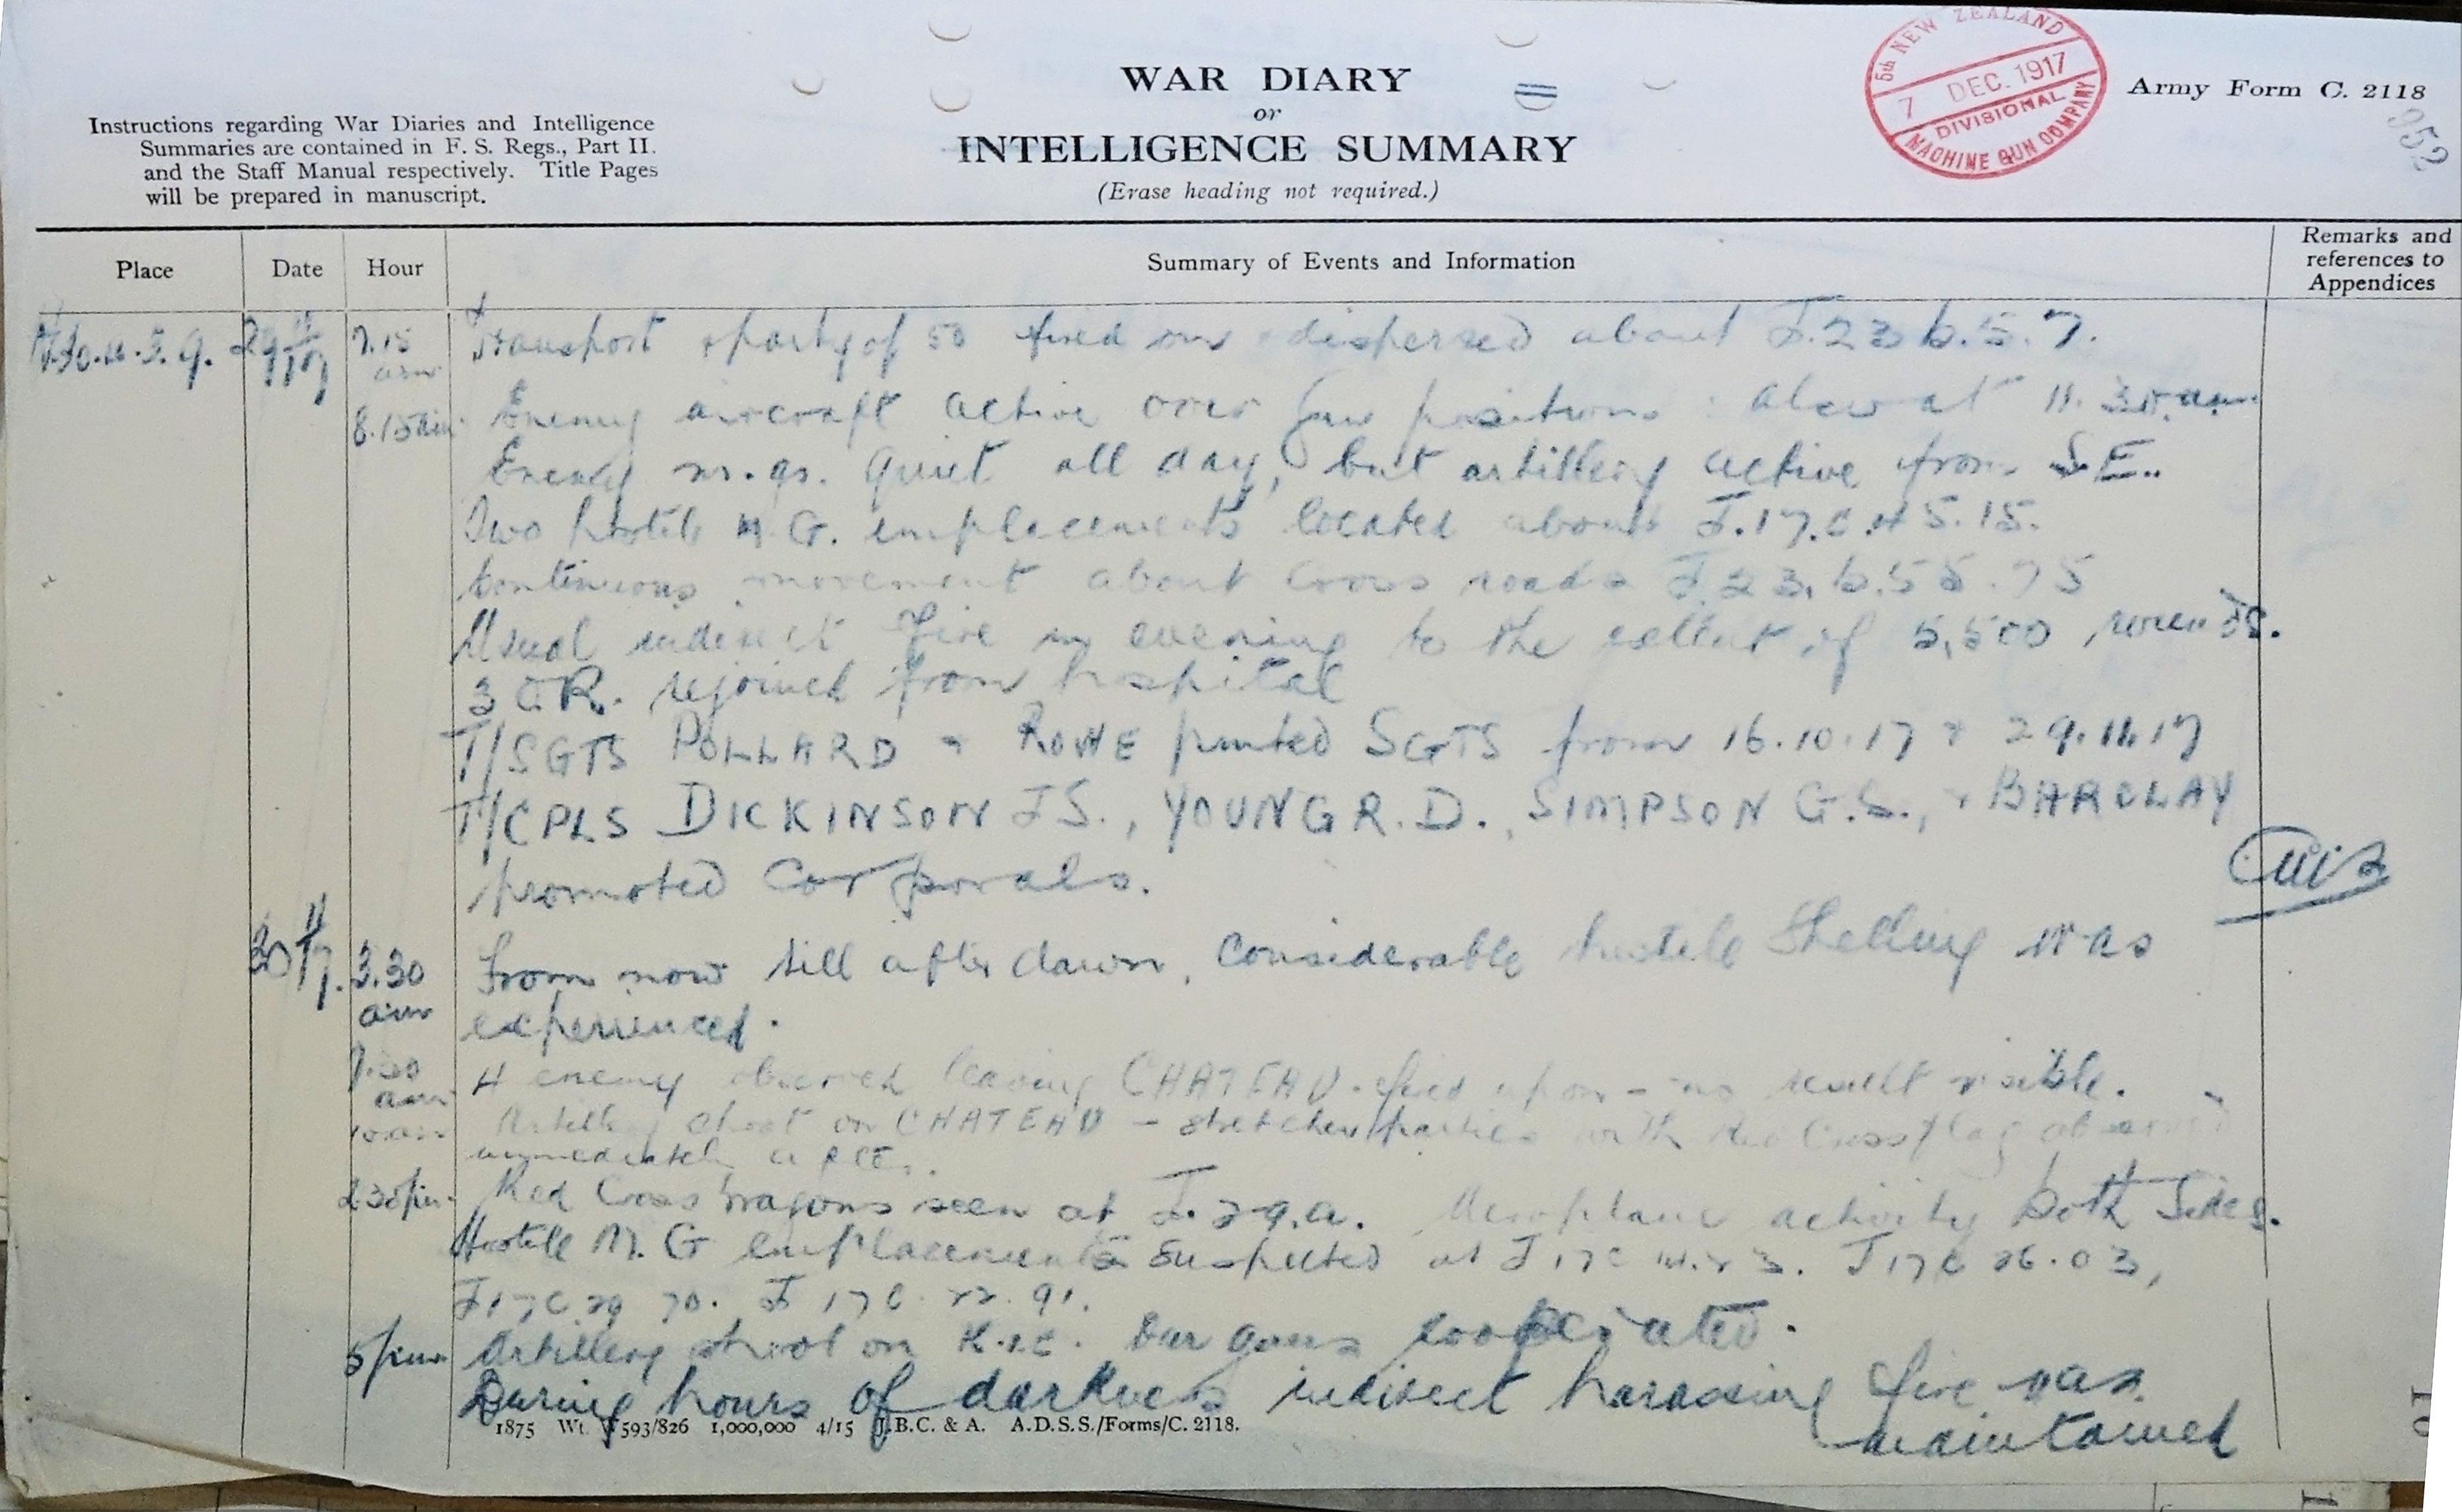 WAR DIARY
or
INTELLIGENCE SUMMARY
(Erase heading not required.)
Instructions regarding War Diaries and Intelligence
Summaries are contained in F. S. Regs., Part II.
and the Staff Manual respectively. Title Pages
will be prepared in manuscript.
5th NEW ZEALAND
7 DEC. 1917
DIVISIONAL
MACHINE GUN COMPANY
Army Form C. 2118
952
Place Date Hour Summary of Events and Information Remarks and
references to
Appendices
29/11/17 7.15 am Transport & party of 50 fired on & dispersed about J.23.b.5.7.
8.15 am. Enemy aircraft active over gun positions: also at 11.30 am.
Enemy m.gs. quiet all day, but artillery active from S.E..
Two hostile M.G. emplacements located about J.17.c.45.15.
Continuous movement about Cross roads J.23.b.55.75
Usual indirect fire in evening to the extent of 5,500 rounds.
3 O.R. rejoined from hospital
T/SGTS POLLARD & ROWE SGTS from 16.10.17 & 29.11.17
T/CPLS DICKINSON J S., YOUNG R. D., SIMPSON G.S., & BARCLAY
promoted Corporals.
30/11/17. 3.30 am From now till after dawn, considerable hostile shelling was
experienced.
7.30 am 4 enemy observed leaving CHATEAU - fired upon - no result visible.
10 am Artillery shoot on CHATEAU - stretcher parties with Red Cross flag observed
immediately after.
2.30 pm. Red Cross wagons seen at J.29.a. Aeroplane activity both sides.
Hostile M.G emplacements suspected at J 17 c J 17 c 26.03,
J 17 c 29 70. J 17 c. 22. 91.
5 pm Artillery shoot on Our guns cooperated.
During hours of darkness indirect harassing fire was
maintained
1875 Wt. W593/826 1,000,000 4/15 J.B.C. & A. A.D.S.S./Forms/C. 2118.